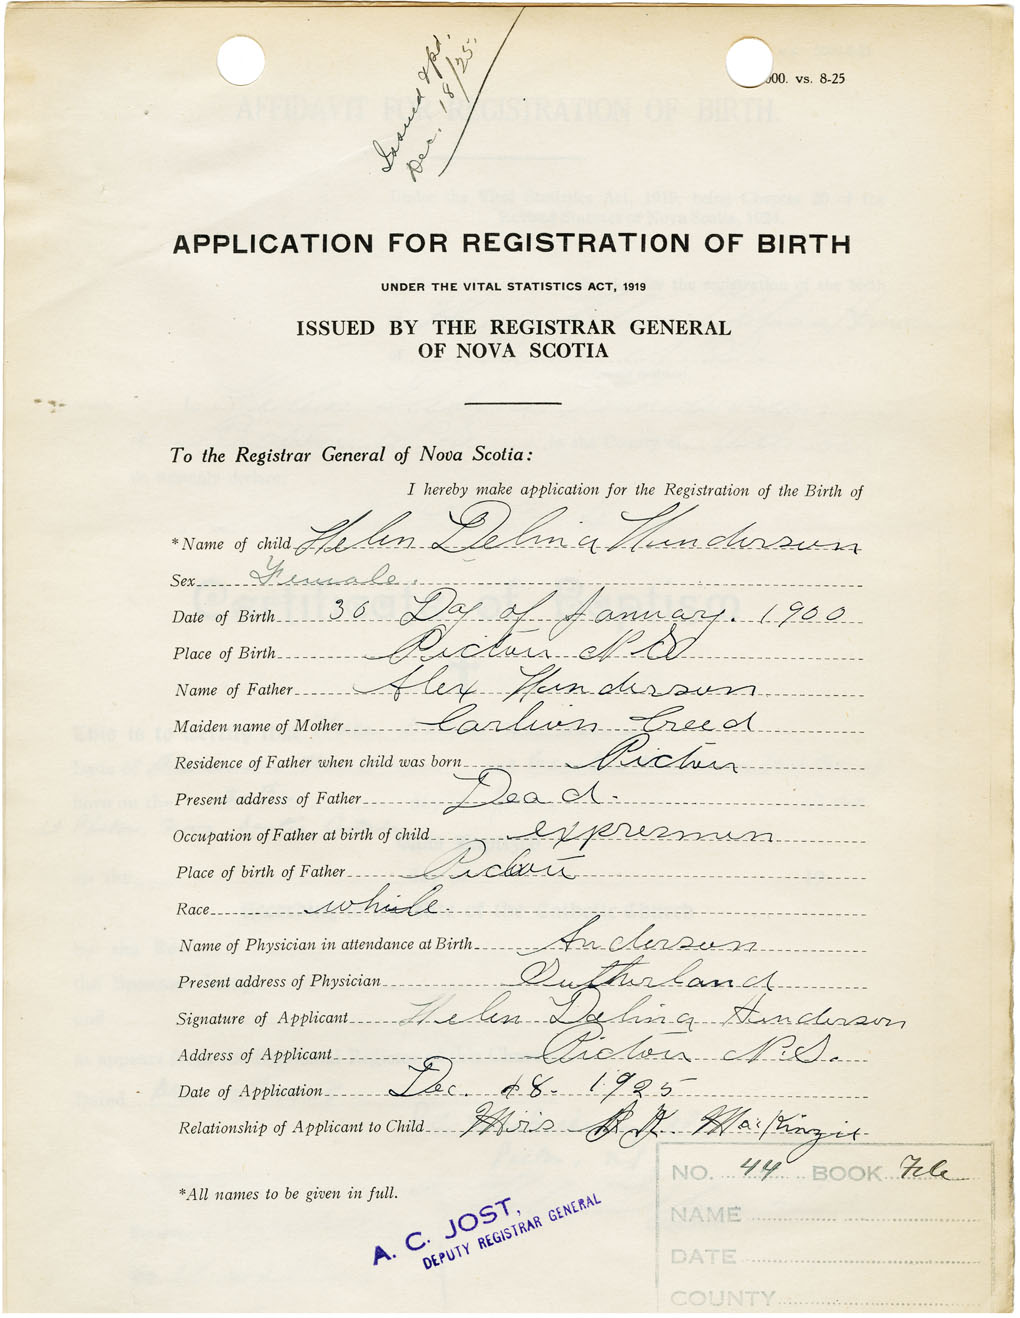 Issued & pd.
Dec. 18/25.
000. vs. 8-25
APPLICATION FOR REGISTRATION OF BIRTH
UNDER THE VITAL STATISTICS ACT, 1919
ISSUED BY THE REGISTRAR GENERAL
OF NOVA SCOTIA
To the Registrar General of Nova Scotia:
I hereby make application for the Registration of the Birth of
*Name of child Helen Delina Henderson
Sex Female.
Date of Birth 30 Day of January. 1900
Place of Birth Pictou N.S
Name of Father Alex Henderson
Maiden name of Mother Creed
Residence of Father when child was born Pictou
Present address of Father Dead.
Occupation of Father at birth of child expressmen
Place of birth of Father Pictou
Race white.
Name of Physician in attendance at Birth Anderson
Present address of Physician Sutherland
Signature of Applicant Helen Delina Henderson
Address of Applicant Pictou N.S.
Date of Application Dec. 18. 1925
Relationship of Applicant to Child MacKinzie.
*All names to be given in full.
A. C. JOST,
DEPUTY REGISTRAR GENERAL
NO. 44 BOOK File
NAME
DATE
COUNTY